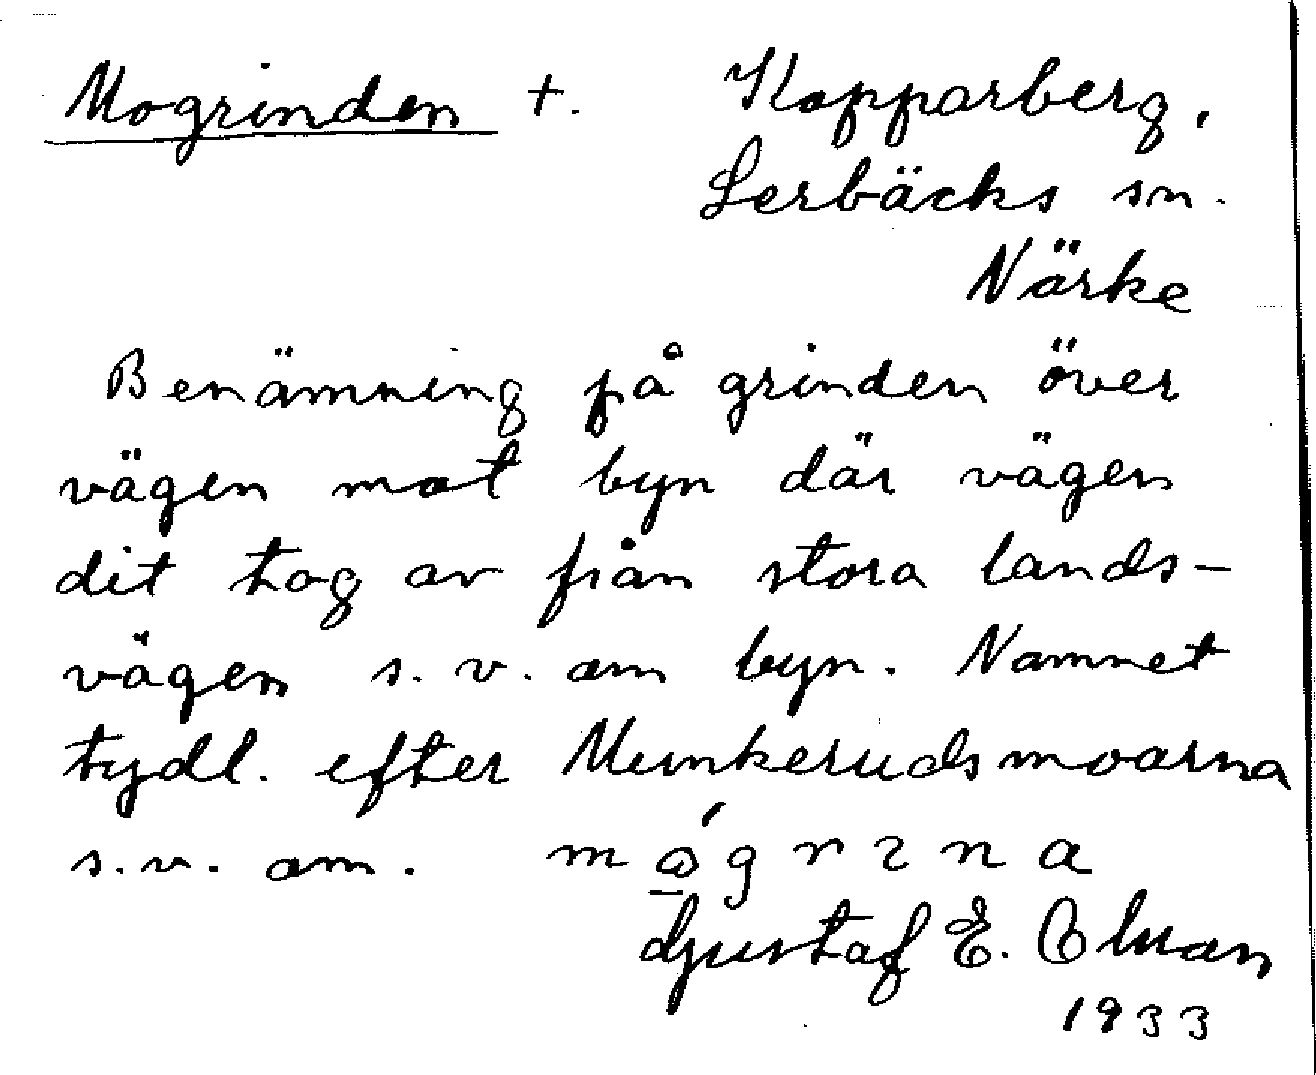 Mogrinden +. Kopparberg,
Lerbäcks sn.
Närke
Benämning på grinden över
vägen mot byn där vägen
dit tog av från stora lands-
vägen s.v. om byn. Namnet
tydl. efter Munkerudsmoarna
s.v. om.
Gustaf E.
1933